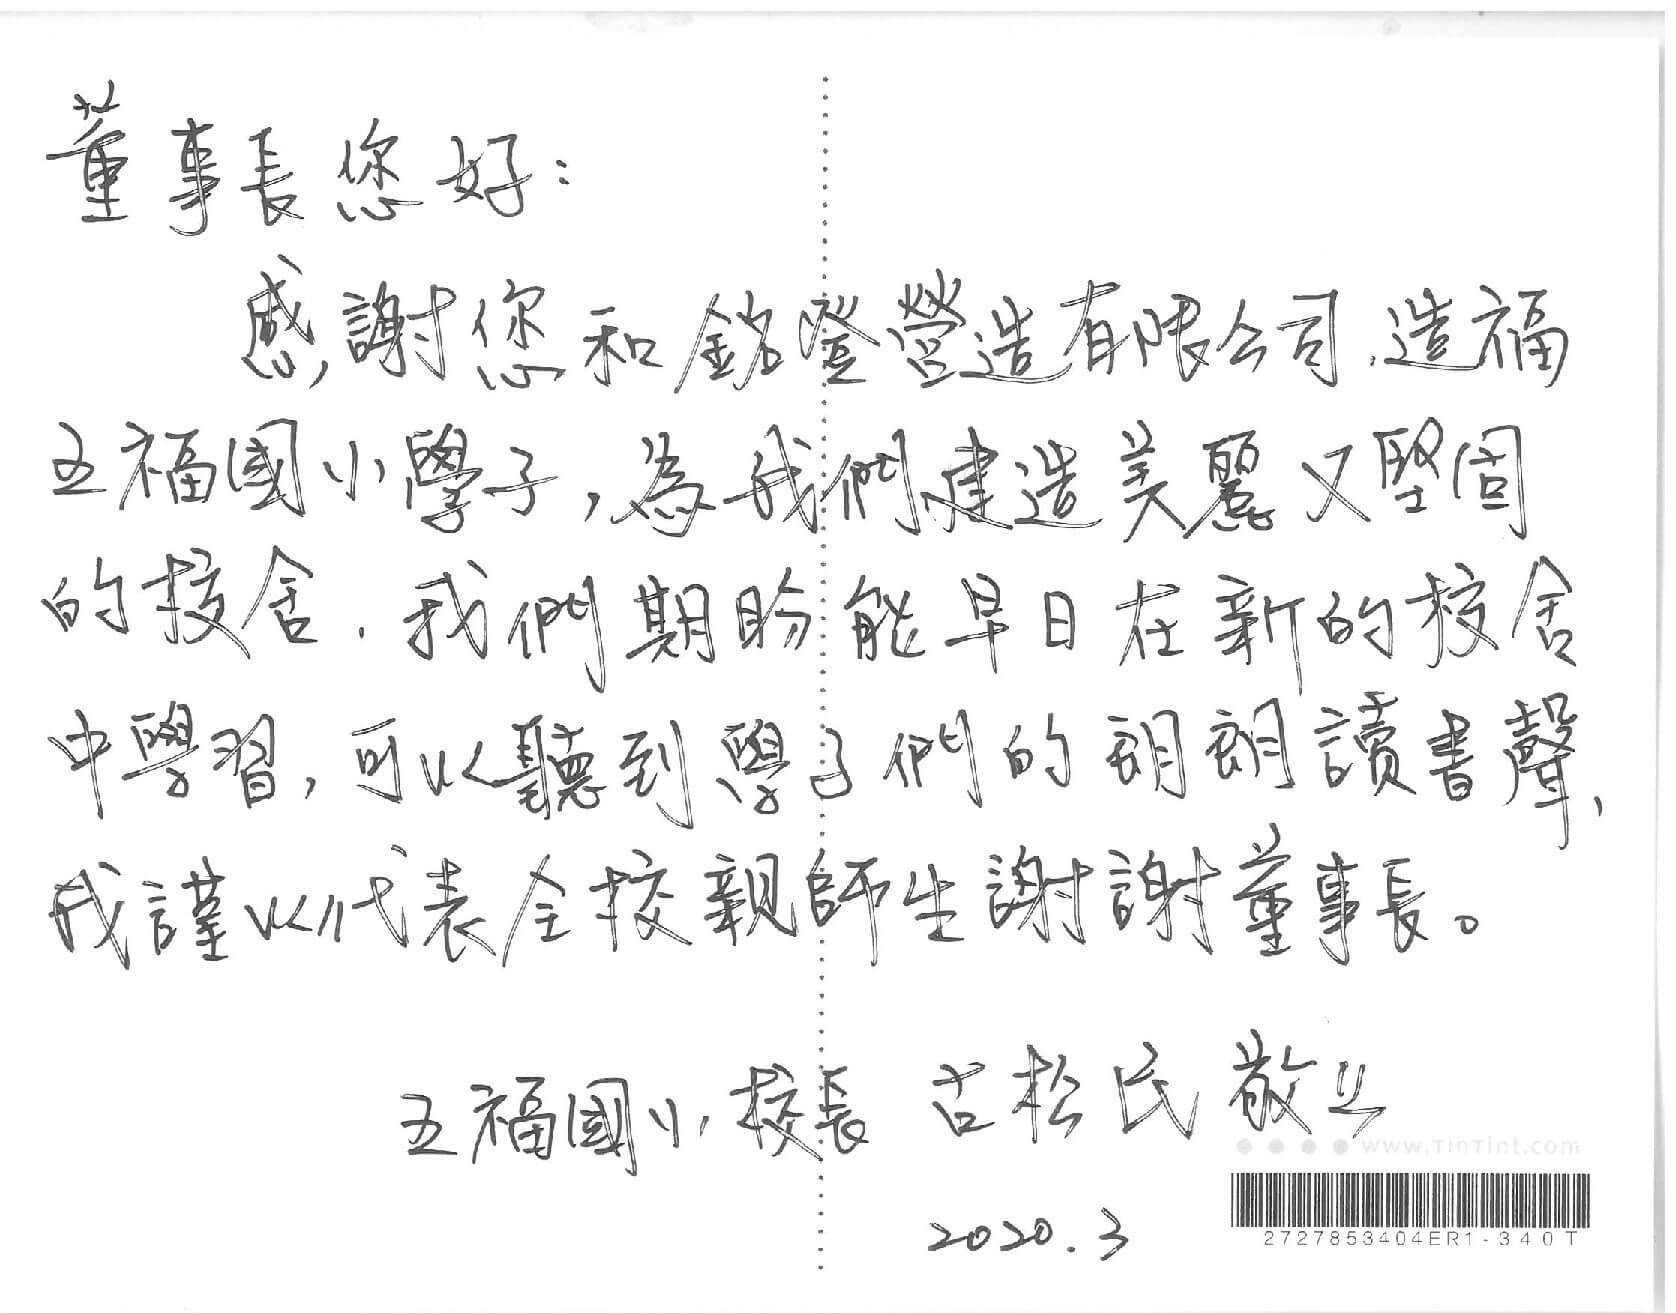 董事長您好:
感謝您和銘登營造有限公司,造福
五福國小學子,為我們建造美麗又堅固
的校舍.我們期盼能早日在新的校舍
中學習,可以聽到學子們的朗朗讀書聲,
我謹以代表全校親師生謝謝董事長。
五福國小校長 古松民 敬上
www.TinTint.com
2727853404ER1-340T
2020.3